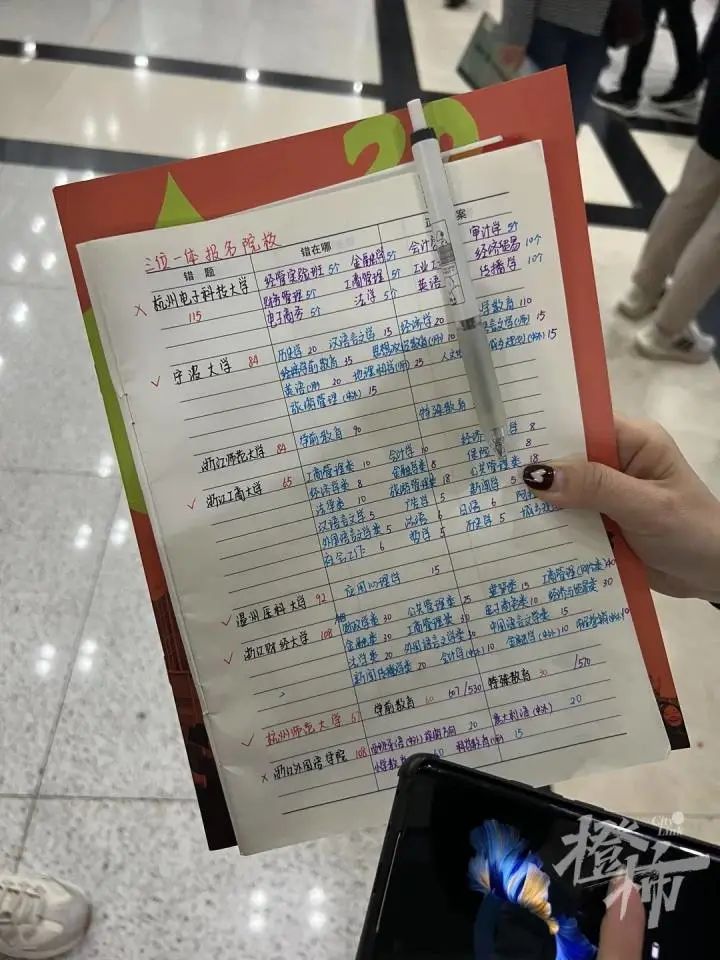 三位一体报名院校
错 题 错在哪 正 案
× 杭州电子科技大学 经管实验班 5个 金融学 5个 会计 审计学 5个
115 财务管理 5个 工商管理 5个 工业工 经济贸易 10个
电子商务 5个 法学 5个 英语 传播学 10个
✓ 宁波大学 84 历史学 20 汉语言文学 15 经济学 20 学教育 110
学前教育 25 思想政治教育(师) 10 言文学(师) 15
英语(师) 20 地理科学(师) 25 人文
旅游管理(中外) 15
浙江师范大学 84 学前教育 90 特殊教育
✓ 浙江工商大学 65 工商管理类 10 会计学 10 经济 学 8
经济学类 8 金融学类 8 保险 8
法学类 10 旅游管理类 18 公共管理类 18
汉语言文学 5 广告学 5 新闻学 5
外国语言文学类 5 法语 6 日语 6
社会工作 6 哲学 5 历史学 5
✓ 温州医科大学 92 应用心理学 15
✓ 浙江财经大学 108 财政学类 30 公共管理类 25 工商管理
金融类 30 工商管理类 30 电子商务类 10 30
法学类 20 外国语言文学类 30 中国语言文学类 15
新闻传播学类 20 会计学(中外) 10 金融学(中外) 10
✓ 杭州师范大学 67 学前教育 60 507/530 特殊教育 20 /570
× 浙江外国语学院 108 西班牙语(中外) 20 意大利语(中外) 20
小学教育 60 科学教育(师) 15
City Link
橙柿